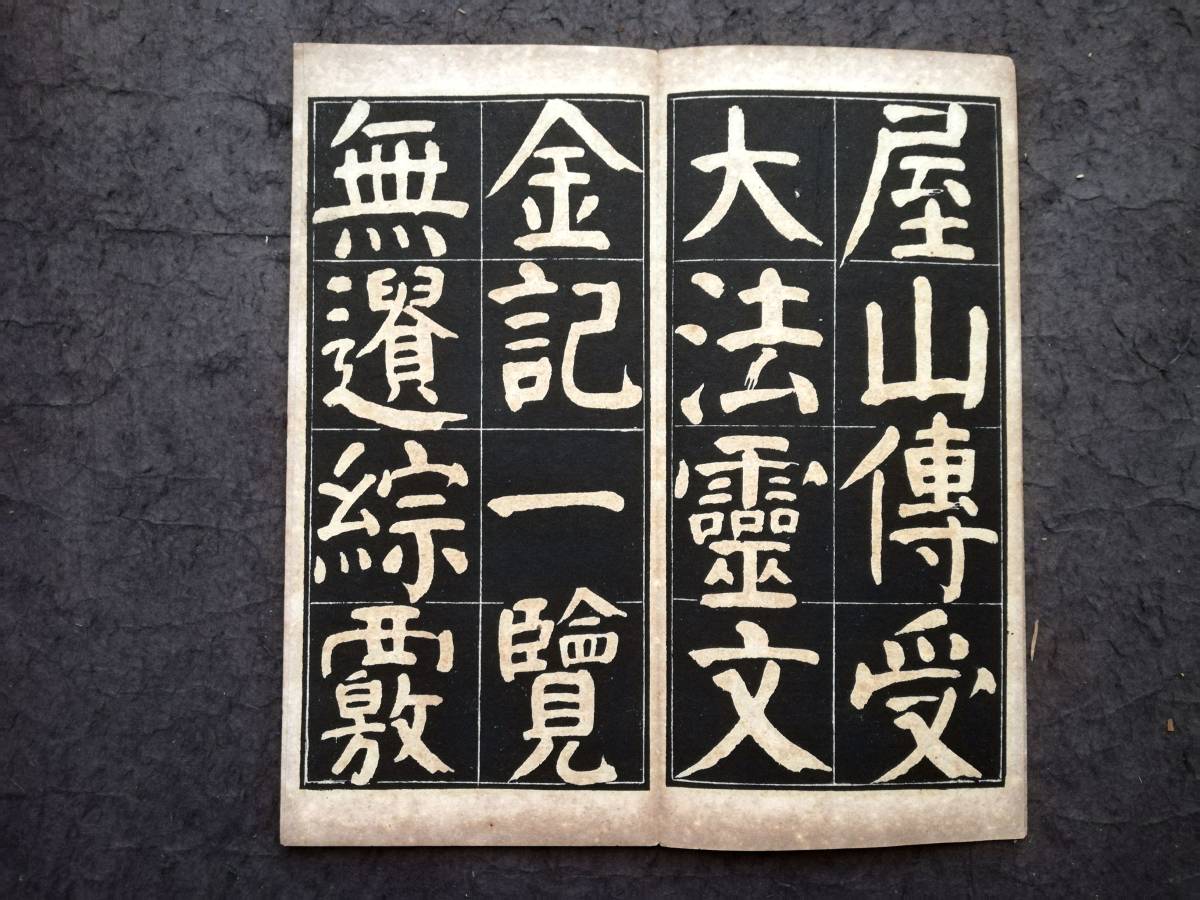 屋山傳受
大法靈文
金記一覽
無遺綜覈